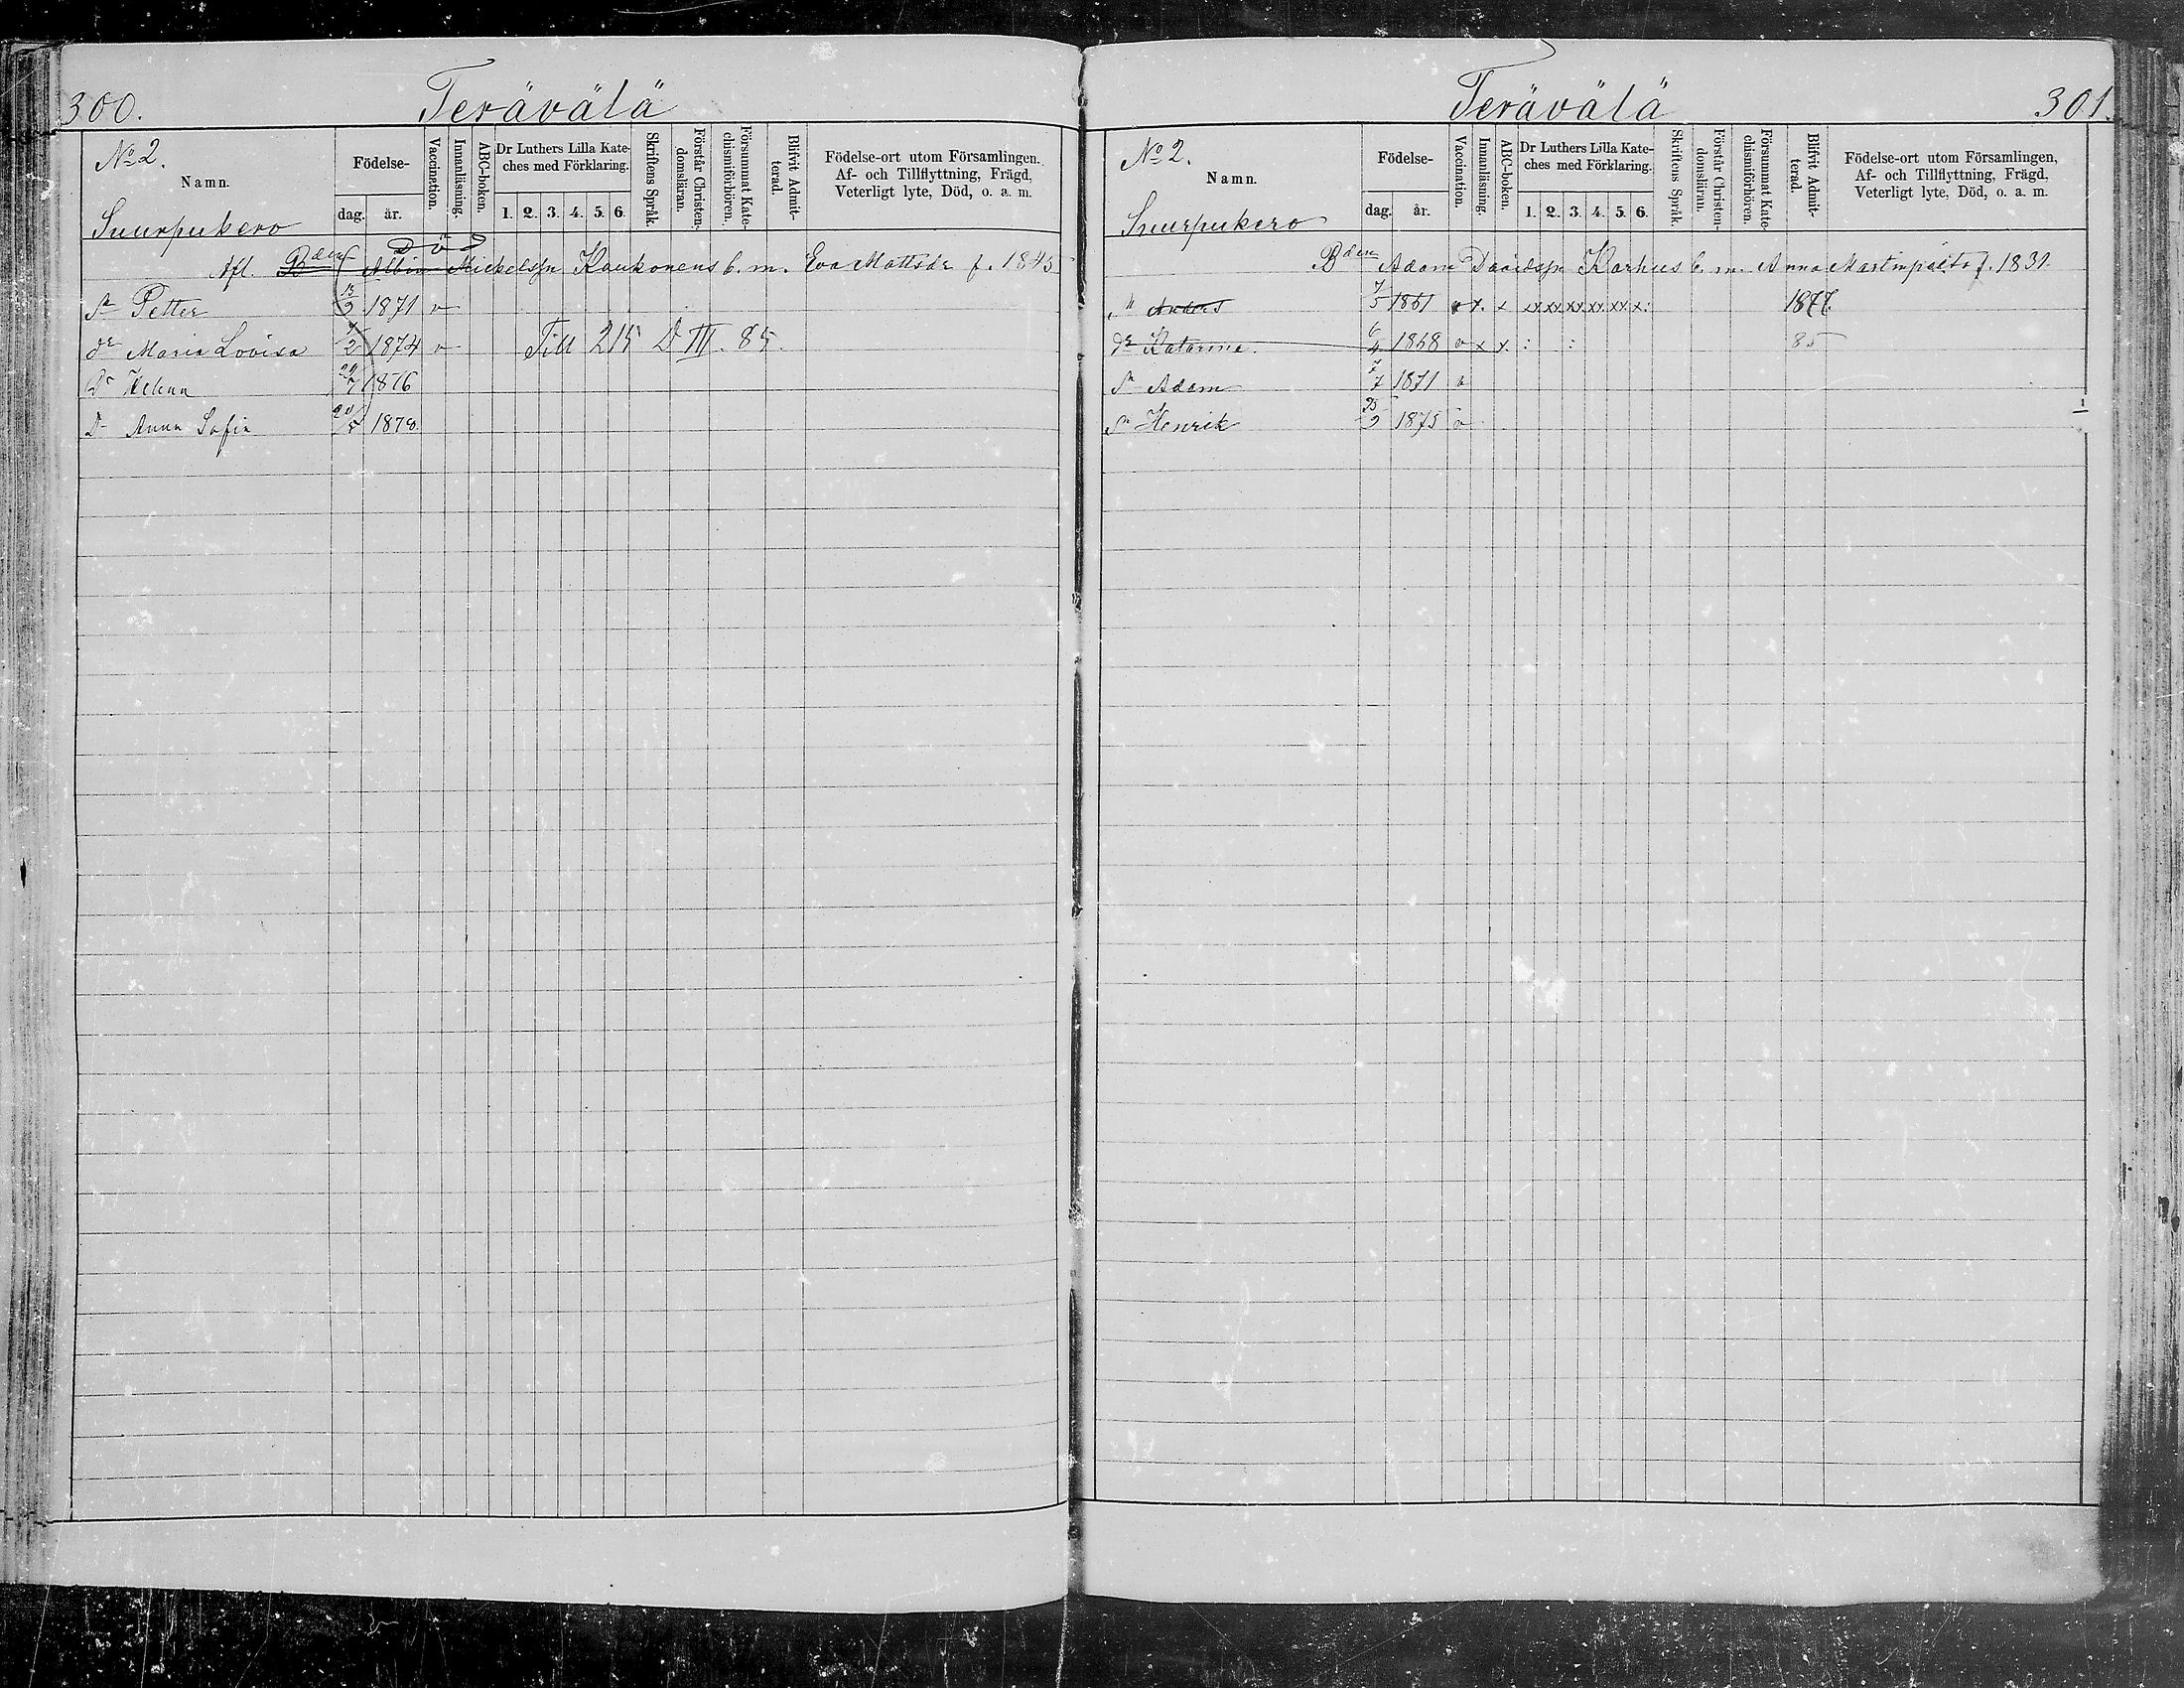 300. Terävälä
No 2.
Namn.
Suurpukero
Födelse-
dag. år.
Vaccination.
Innanläsning.
ABC-boken.
Dr Luthers Lilla Kate-
ches med Förklaring.
1. 2. 3. 4. 5. 6.
Skriftens Språk.
Förstår Christen-
domsläran.
Försummat Kate-
chismiförhören.
Blifvit Admit-
terad.
Födelse-ort utom Församlingen.
Af- och Tillflyttning, Frägd,
Veterligt lyte, Död, o. a. m.
Död
Afl. Bden Albin Mickelsspn Kaukonens b. m. Eva Mattsdr f. 1845
Sn Petter 13/9 1871 v
dr Maria Lovisa 7/2 1874 v Till 215 D III. 85.
Dr Helena 29/7 1876
Dr Anna Sofia 20/5 1878
Terävälä 301.
No 2.
Namn.
Suurpukero
Födelse-
dag. år.
Vaccination.
Innanläsning.
ABC-boken.
Dr Luthers Lilla Kate-
ches med Förklaring.
1. 2. 3. 4. 5. 6.
Skriftens Språk.
Förstår Christen-
domsläran.
Försummat Kate-
chismiförhören.
Blifvit Admit-
terad.
Födelse-ort utom Församlingen,
Af- och Tillflyttning, Frägd,
Veterligt lyte, Död, o. a. m.
Bden Adam Davidsspn Karhus b. m. Anna f. 1831.
Sn Anders 7/5 1861 v x. x xx xx xx xx xx x: 1877.
dr Katarina. 6/4 1868 v x x. : : 85
Sn Adam 7/7 1871 v
Sn Henrik 25/9 1875 v